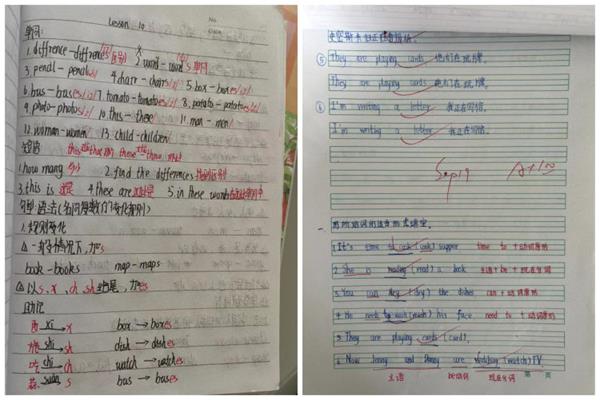 Lesson 10
No.
Date
单词:
1. diffrence-diffrences 区别
2. word-words 单词
3. pendl-pendls
4. chair-chairs
5. box-boxes
6. bus-buses
7. tomato-tomatoes
8. potato-potatoes
9. photo-photos
10. this-these
11. man-men
12. woman-women
13. child-children
短语
1. how many 多少
2. find the differences 找到区别
3. this is 这是
4. these are 这些是
5. in these words 在这些单词中
1. 规则变化
△ 一般情况下, 加s
book-books map-maps
△ 以s, x, ch, sh结尾, 加es
助记
xi → x box → boxes
shi → sh dish → dishes
吃 chi → ch watch → watches
s bus → buses
⑤ They are playing cards 他们在玩牌.
They are playing cards 他们在玩牌.
⑥ I'm writing a letter 我正在写信.
I'm writing a letter 我正在写信.
Sep19 A+100
一. 用所给词的适当形式填空.
1. It's time to cook (cook) supper time to + 动词原形
2. She is reading (read) a book 主语+be+现在分词
3. You can dry (dry) the dishes can + 动词原形
4. He needs to wash (wash) his face need to + 动词原形
5. They are playing cards (card).
6. Now Jenny and Danny are watching (watch) TV.
主语 be动词 现在分词
第 页